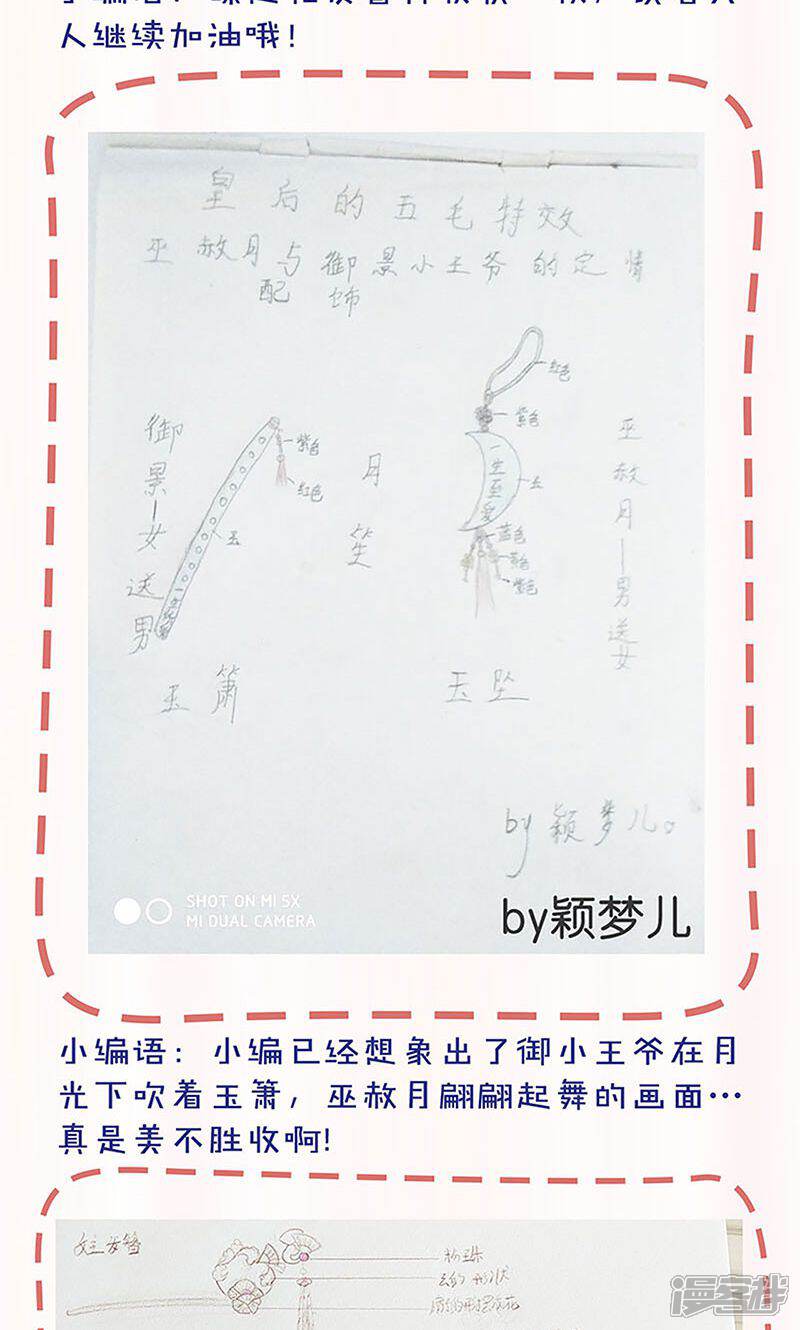 人继续加油哦！
皇后的五毛特效
巫赦月与御景小王爷的定情
配饰
红色
紫色
御景—女送男
紫色
红色
玉
月笙
一生至爱
玉
蓝色
紫色
巫赦月—男送女
玉箫
玉坠
by颖梦儿。
SHOT ON MI 5X
MI DUAL CAMERA
by颖梦儿
小编语：小编已经想象出了御小王爷在月
光下吹着玉箫，巫赦月翩翩起舞的画面…
真是美不胜收啊！
漫客栈